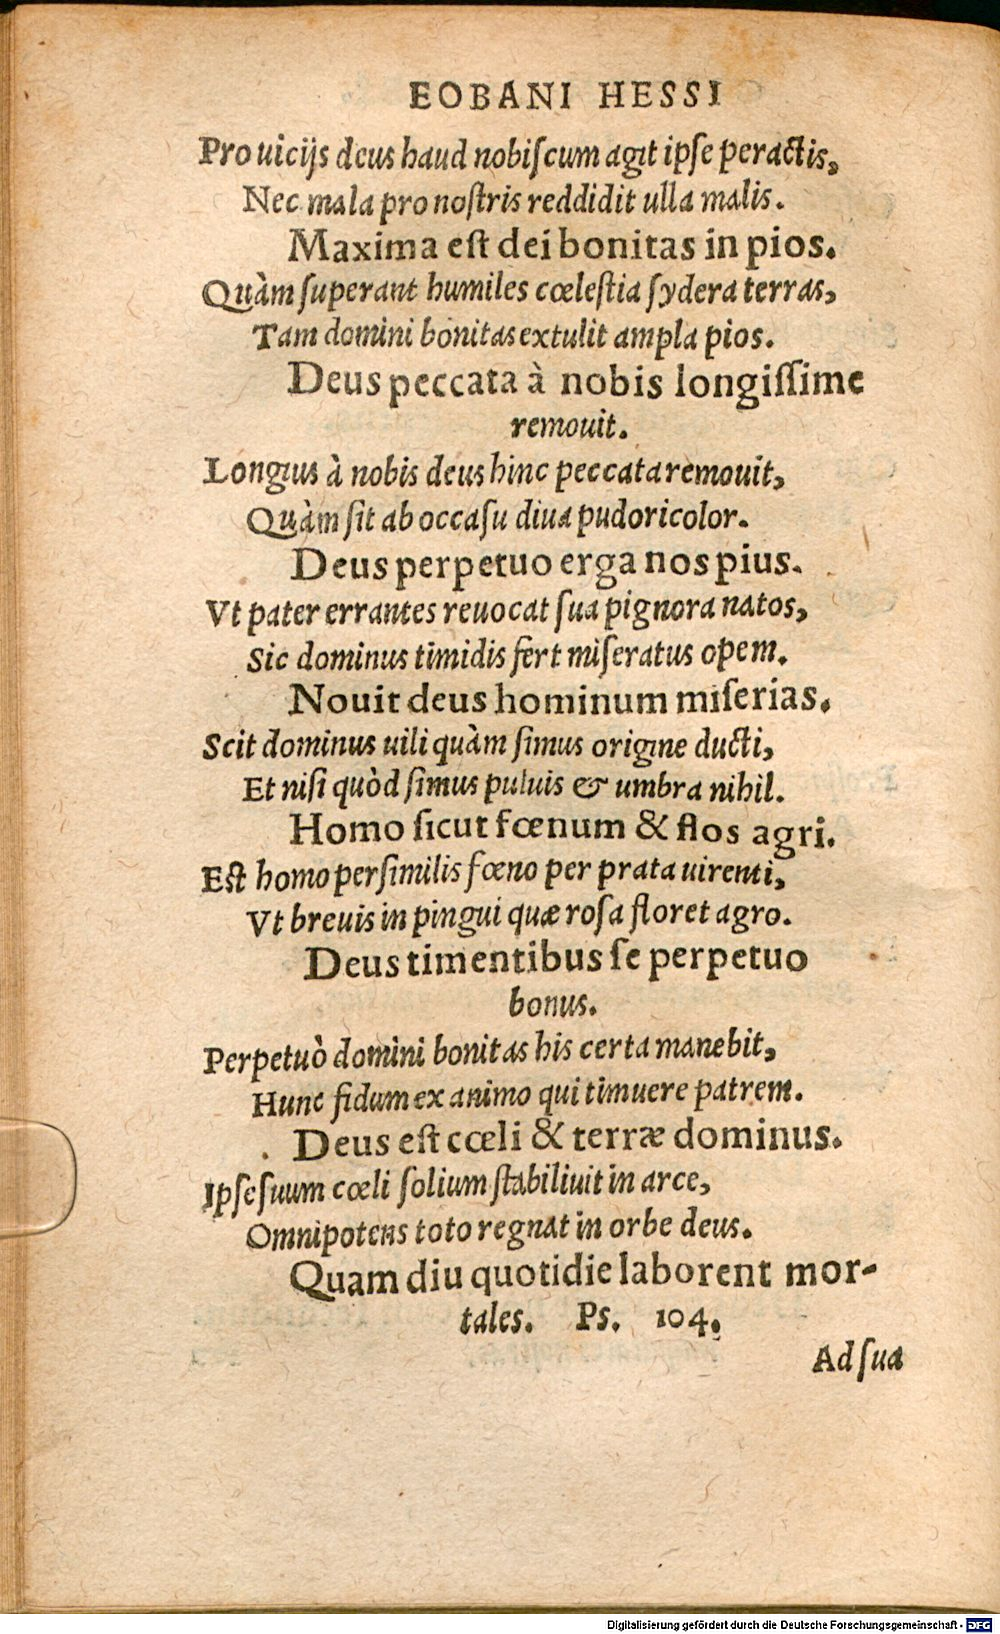 EOBANI HESSI
Pro uicijs deus haud nobiſcum agit ipſe peractis,
Nec mala pro noſtris reddidit ulla malis.
Maxima eſt dei bonitas in pios.
Quàm ſuperant humiles cœleſtia ſydera terras,
Tam domini bonitas extulit ampla pios.
Deus peccata à nobis longiſſime
remouit.
Longius à nobis deus hinc peccata remouit,
Quàm ſit ab occaſu diua pudoricolor.
Deus perpetuo erga nos pius.
Vt pater errantes reuocat ſua pignora natos,
Sic dominus timidis fert miſeratus opem.
Nouit deus hominum miſerias.
Scit dominus uili quàm ſimus origine ducti,
Et niſi quòd ſimus puluis & umbra nihil.
Homo ſicut fœnum & flos agri.
Eſt homo perſimilis fœno per prata uirenti,
Vt breuis in pingui quæ roſa floret agro.
Deus timentibus ſe perpetuo
bonus.
Perpetuò domini bonitas his certa manebit,
Hunc fidum ex animo qui timuere patrem.
Deus eſt cœli & terræ dominus.
Ipſe ſuum cœli ſolium ſtabiliuit in arce,
Omnipotens toto regnat in orbe deus.
Quam diu quotidie laborent mor-
tales. Ps. 104.
Ad ſua
Digitalisierung gefördert durch die Deutsche Forschungsgemeinschaft - DFG